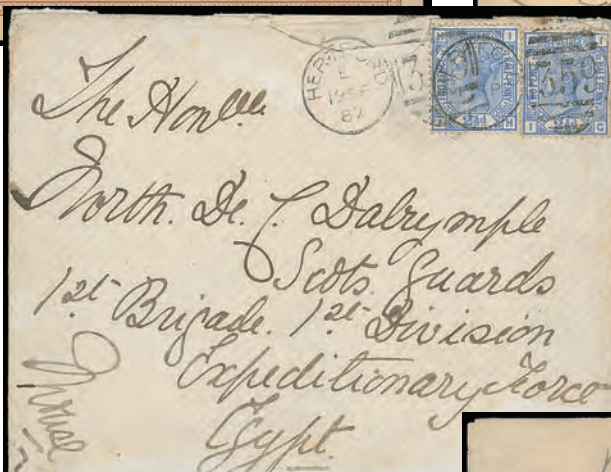 HEREFORD
E
82
359
The Honble
North. De. C. Dalrymple
Scots Guards
1st Brigade. 1st Division
Expeditionary Force
Egypt.